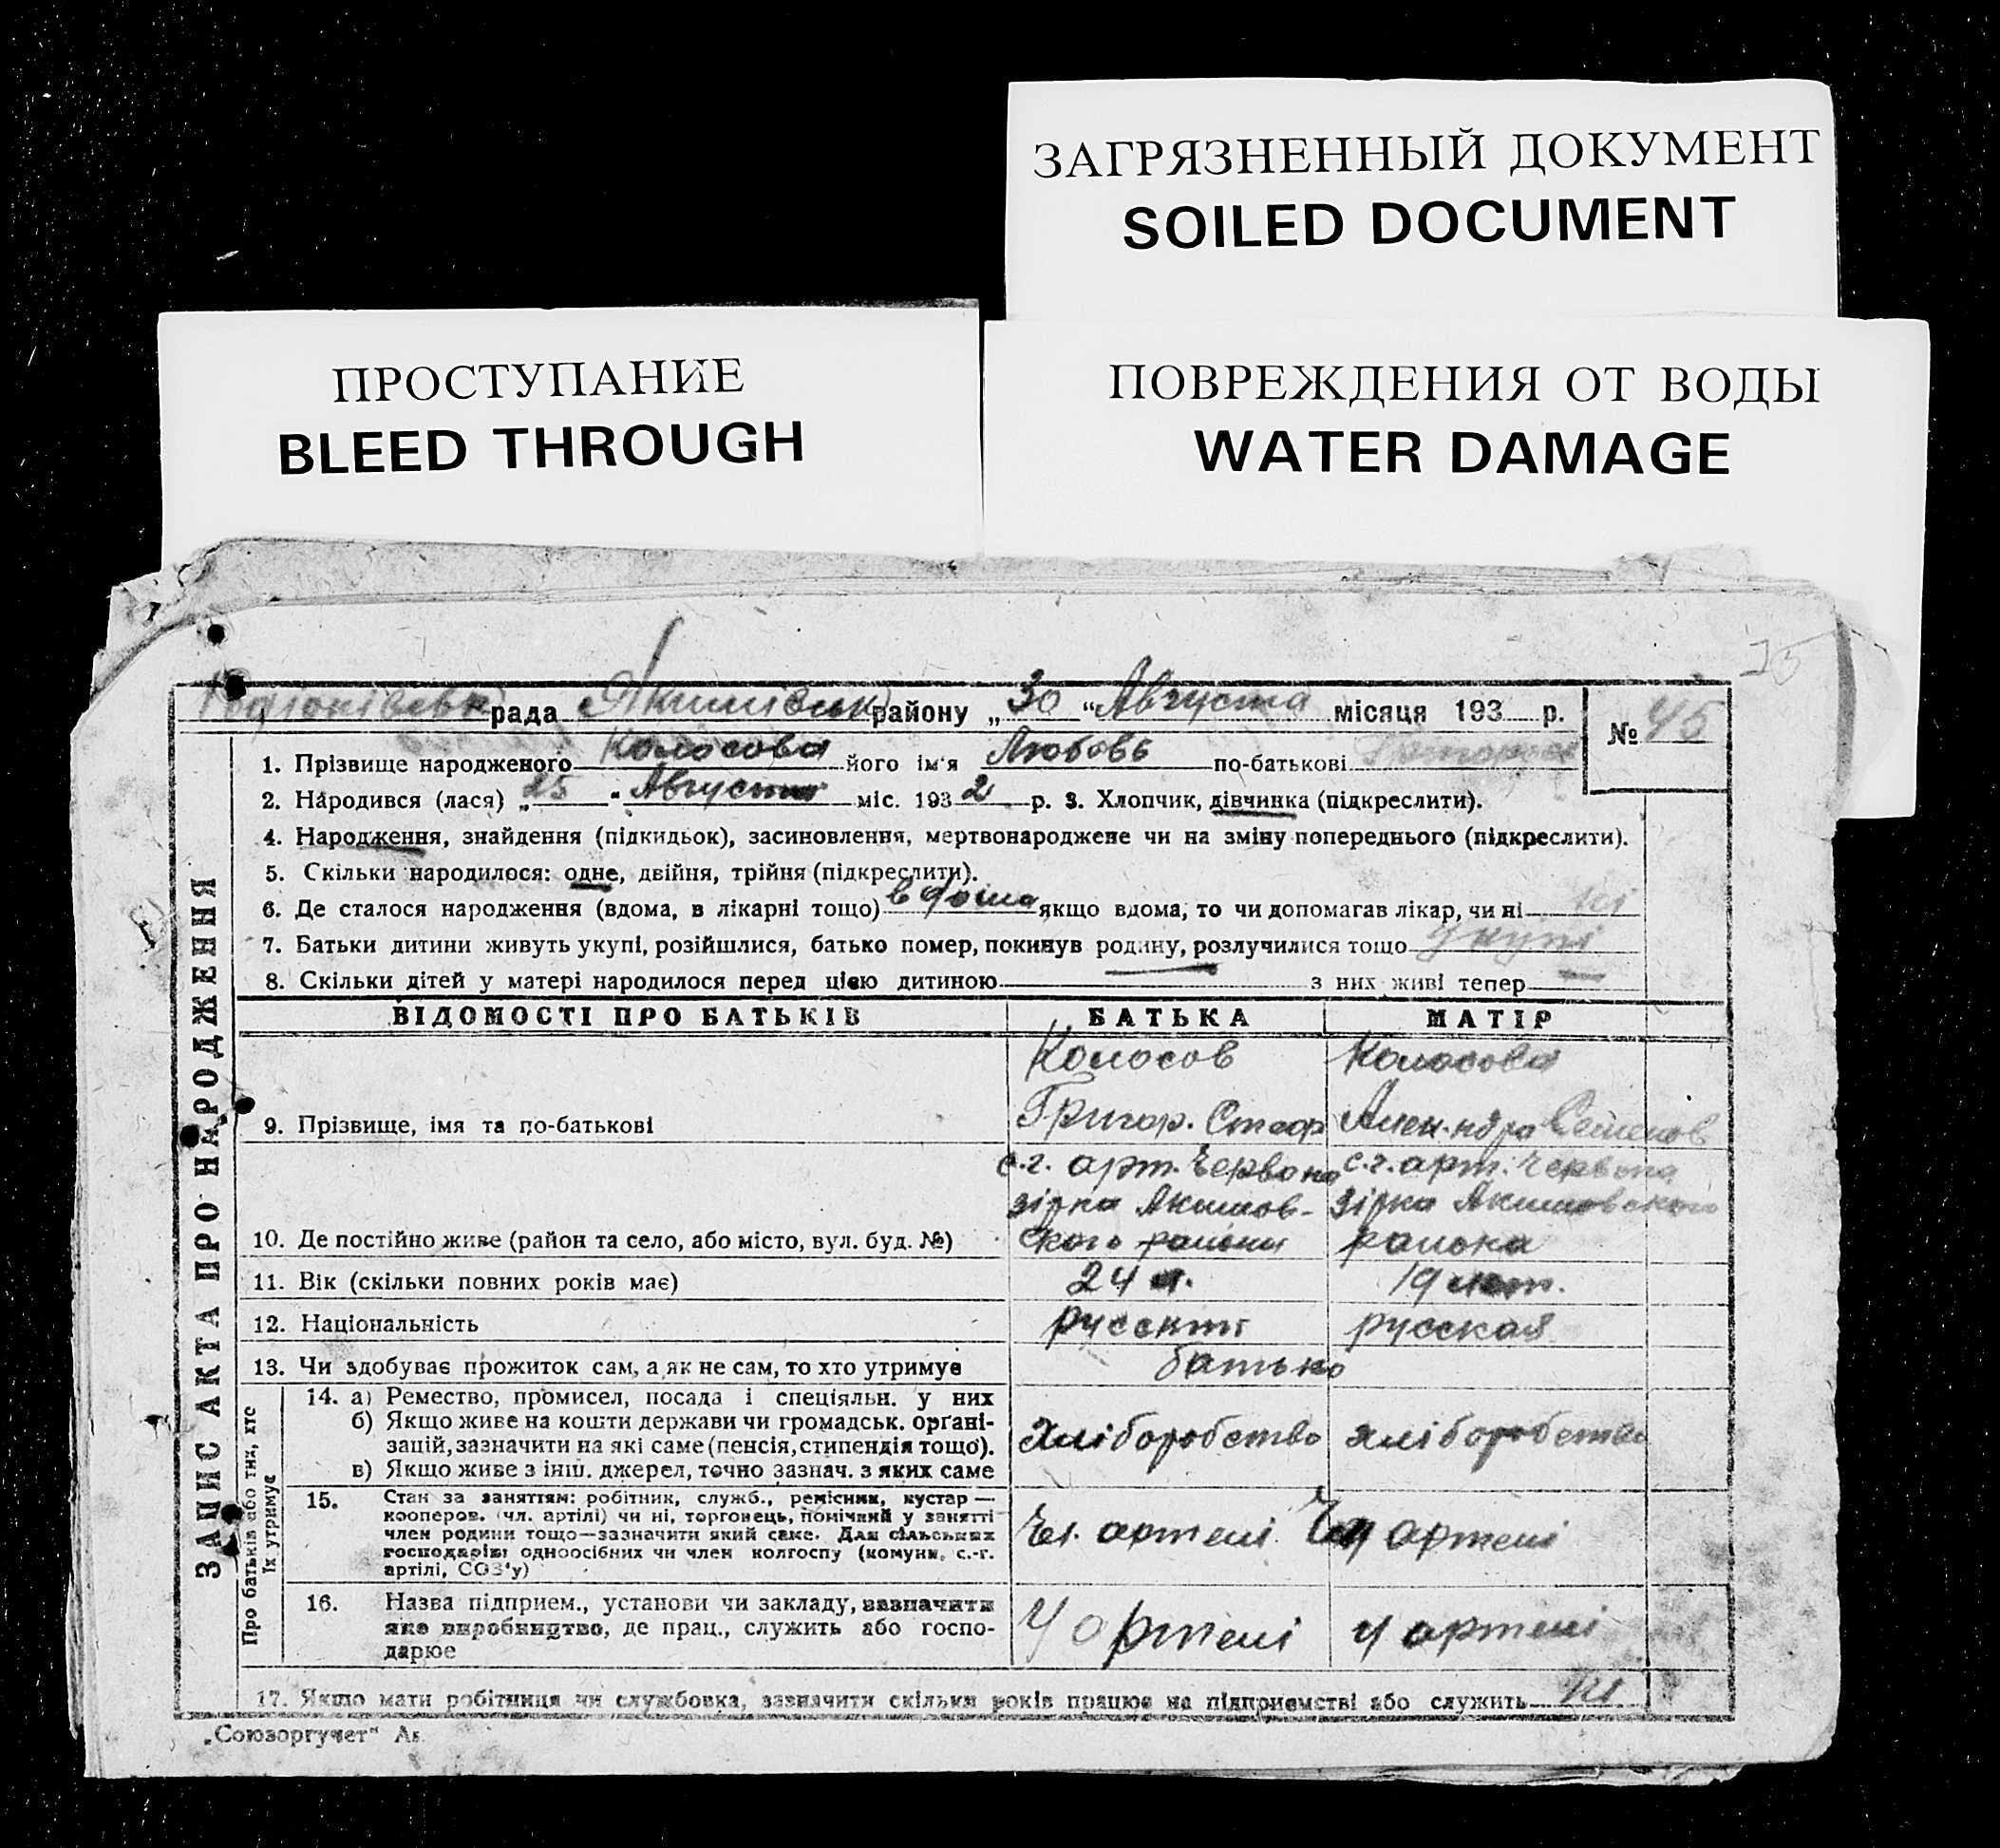 ЗАГРЯЗНЕННЫЙ ДОКУМЕНТ
SOILED DOCUMENT
ПРОСТУПАНИЕ
BLEED THROUGH
ПОВРЕЖДЕНИЯ ОТ ВОДЫ
WATER DAMAGE
рада Якимівськ району „30“ Августа місяця 193 р. № 45
1. Прізвище народженого Колосова його ім'я Любовь по-батькові
2. Народився (лася) „25“ Августа міс. 1932 р. 3. Хлопчик, дівчинка (підкреслити).
4. Народження, знайдення (підкидьок), засиновлення, мертвонароджене чи на зміну попереднього (підкреслити).
5. Скільки народилося: одне, двійня, трійня (підкреслити).
6. Де сталося народження (вдома, в лікарні тощо) в дома якщо вдома, то чи допомагав лікар, чи ні ні
7. Батьки дитини живуть укупі, розійшлися, батько помер, покинув родину, розлучилися тощо Укупі
8. Скільки дітей у матері народилося перед цією дитиною — з них живі тепер —
ЗАПИС АКТА ПРО НАРОДЖЕННЯ
ВІДОМОСТІ ПРО БАТЬКІВ БАТЬКА МАТІР
Колосов Колосова
9. Прізвище, імя та по-батькові Григор. Алек-ндра Семенов
с.г. арт. Червона с.г. арт. Червона
зірка Акимов- зірка Акимовского
10. Де постійно живе (район та село, або місто, вул. буд. №) ского району района
11. Вік (скільки повних років має) 24 л. 19 лет.
12. Національність русский русская
13. Чи здобуває прожиток сам, а як не сам, то хто утримує батько
Про батьків або тих, хто
їх утримує
14. а) Ремество, промисел, посада і спеціяльн. у них
б) Якщо живе на кошти держави чи громадськ. орґані-
зацій, зазначити на які саме (пенсія, стипендія тощо).
в) Якщо живе з інш. джерел, точно зазнач. з яких саме
хліборобство хліборобство
15. Стан за заняттям: робітник, служб., ремісник, кустар —
кооперов. (чл. артілі) чи ні, торговець, помічний у занятті
член родини тощо—зазначити який саме. Для сільських
господарів: одноосібних чи член колгоспу (комуни, с.-г.
артілі, СОЗ'у)
Чл. артелі Чл артелі
16. Назва підприєм., установи чи закладу, зазначити
яке виробництво, де прац., служить або госпо-
дарює
У артелі у артелі
17. Якщо мати робітниця чи службовка, зазначити скільки років працює на підприємстві або служить ні
„Союзоргучет“